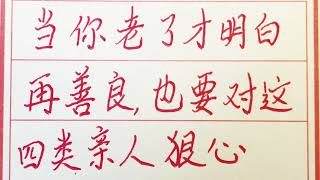 当你老了才明白
再善良,也要对这
四类亲人狠心